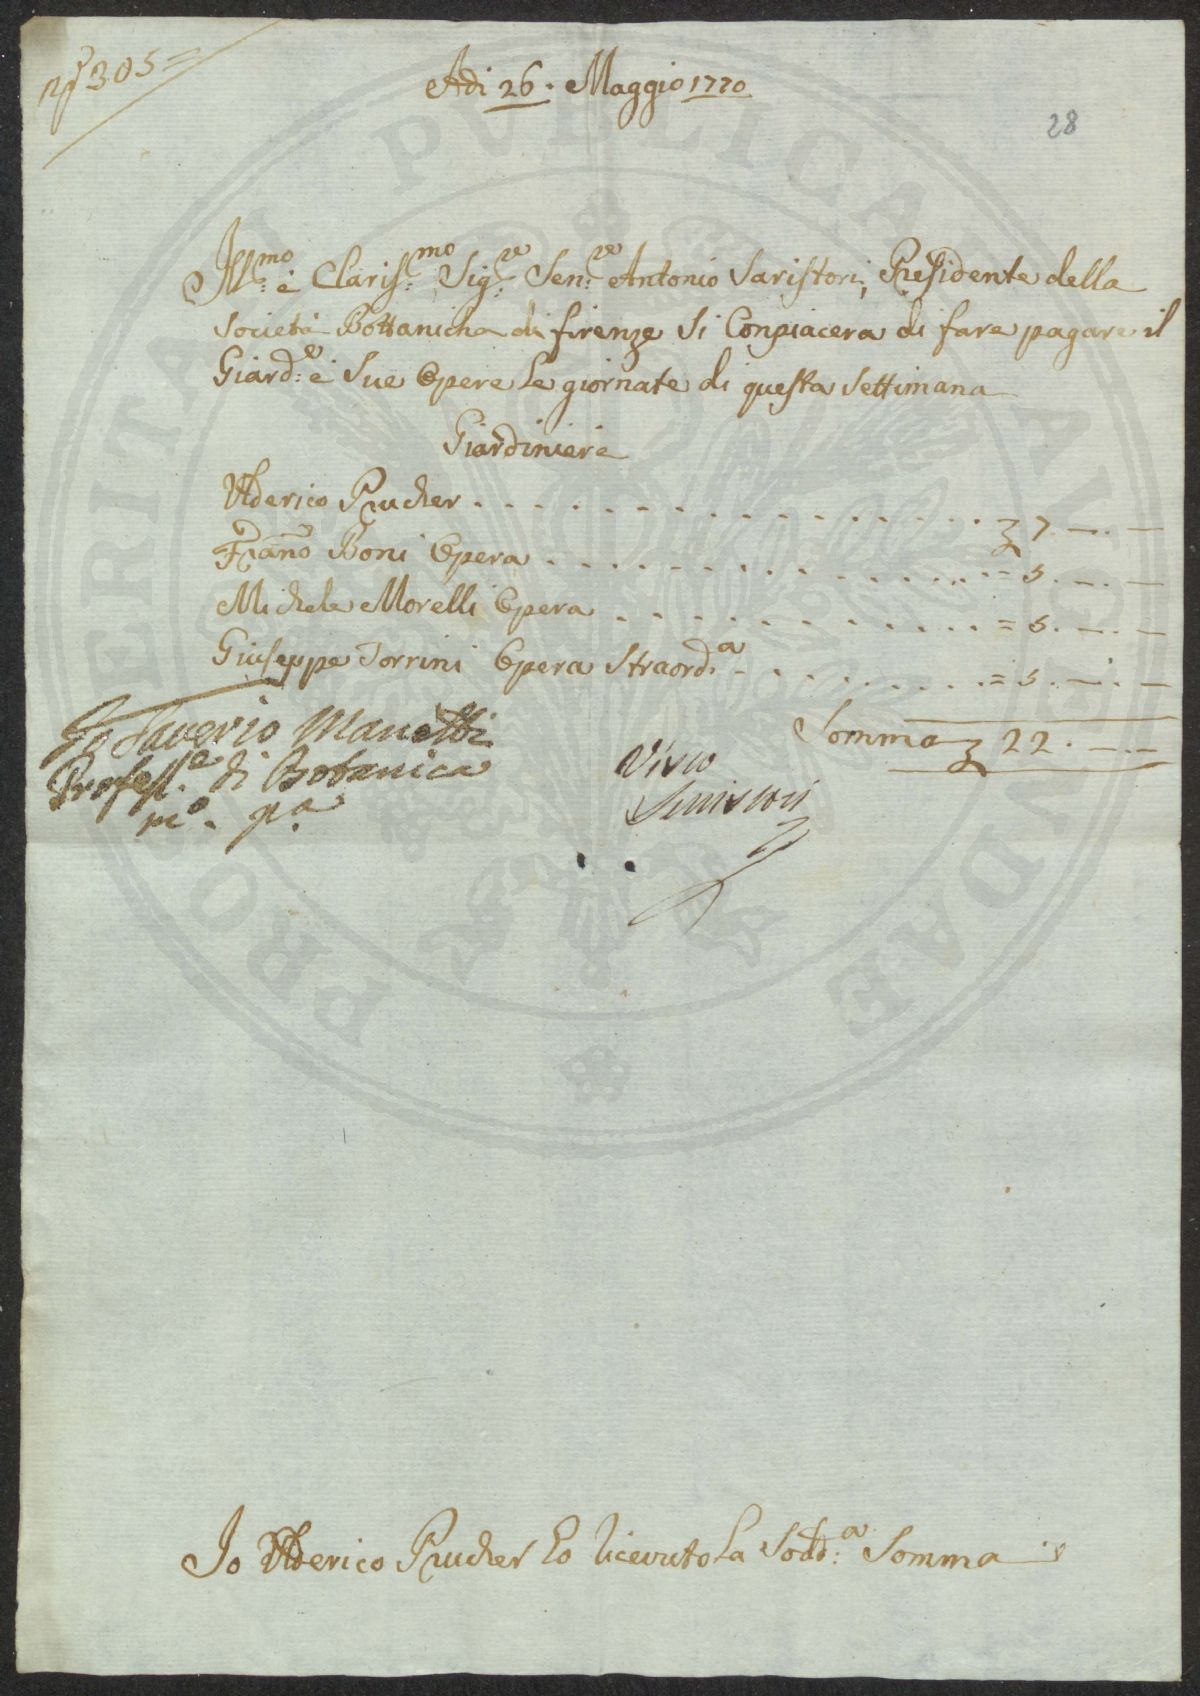 No 305=
Adi 26. Maggio 1770
28
Ill:mo è Claris:mo Sig:re Sen:re Antonio Saristori, Presidente della
Società Bottanicha di firenze Si Conpiacera di fare pagare il
Giard:e è Sue Opere Le giornate di questa Settimana
Giardiniere
Ulderico Prucher . . . . . . . . . . . . . . . . . 7. —. —
Franc̃o Boni Opera . . . . . . . . . . . . = 5. —. —
Michele Morelli Opera . . . . . . . . . . = 5. —. —
Giuseppe Torrini Opera Straord:a . . . . . . . . = 5. —. —
Somma 22. —. —
Io Saverio Manetti
Profess.e di Botanica
mo. pa.
Visto
Io Ulderico Prucher ho riceuto La Sodd:a Somma
PROSPERITATI PUBLICAE AUGENDAE